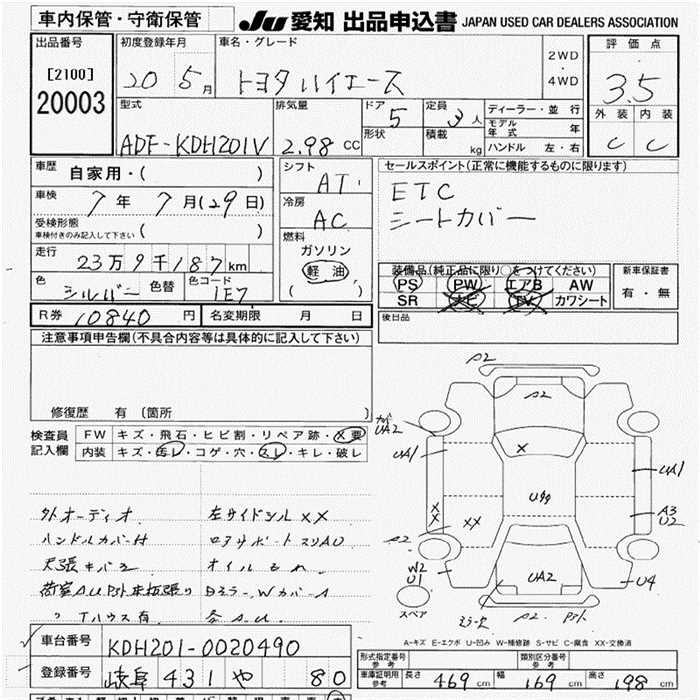 車内保管・守衛保管
JU 愛知 出品申込書 JAPAN USED CAR DEALERS ASSOCIATION
出品番号
[2100]
20003
初度登録年月
20 5月
車名・グレード
トヨタハイエース
2WD
・
4WD
評価点
3.5
外装 内装
C C
型式
ADF-KDH201V
排気量
2.98 CC
ドア 5
形状
定員 3人
積載 kg
ディーラー・並行
モデル年式 年
ハンドル 左・右
車歴 自家用・( )
車検 7年 7月(29日)
受検形態
車検付きのみ記入して下さい ( )
走行
23万9千187km
色 シルバー 色替 色コード 1E7
シフト
AT
冷房
AC
燃料
ガソリン
軽油
( )
セールスポイント(正常に機能するものに限ります)
ETC
シートカバー
装備品(純正品に限り○をつけてください)
PS PW エアB AW
SR ナビ TV カワシート
新車保証書
有・無
後日品
R券 10840円 名変期限 月 日
注意事項申告欄(不具合内容等は具体的に記入して下さい)
修復歴 有 〔箇所 〕
検査員
記入欄
FW キズ・飛石・ヒビ割・リペア跡・X要
内装 キズ・汚レ・コゲ・穴・スレ・キレ・破レ
外オーディオ 左サイドシルXX
ハンドルカバー付
天張キバミ オイル
有
A2
A2
UA2
UA1
X
UA1
X
X
XX
A3
U2
A2
W2
U1
UA2
U4
スペア
A2
A-キズ E-エクボ U-凹み W-補修跡 S-サビ C-腐食 XX-交換済
車台番号 KDH201-0020490
登録番号 岐阜 431 や 80
形式指定番号
参考
類別区分番号
参考
車庫証明用
参考
長さ 469cm 幅 169cm 高さ 198cm